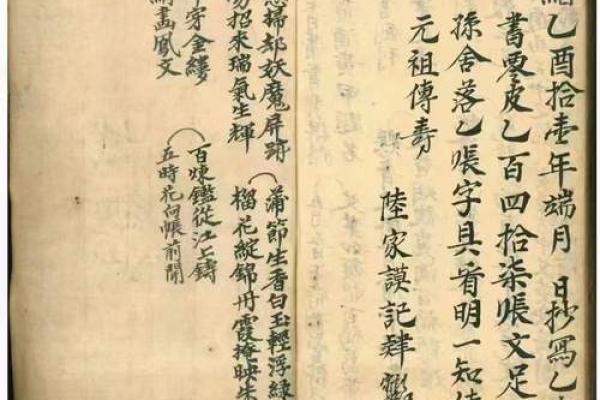 乙酉拾壹年端月 日抄寫乙
書零皮乙百四拾柒帳文足
孫舍落乙帳字具看明一知
元祖傳寿
陸家謨記肆
掃却妖魔屏跡
招來瑞氣生輝
蒲節生香白玉輕浮綠
榴花綻錦丹霞掩映朱
穿金縷
畫鳳文
百煉鑑從江上鑄
五時花向帳前開